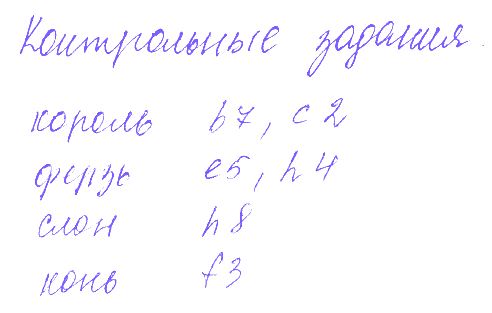 Контрольные задания
король b7, c2
ферзь e5, h4
слон h8
конь f3